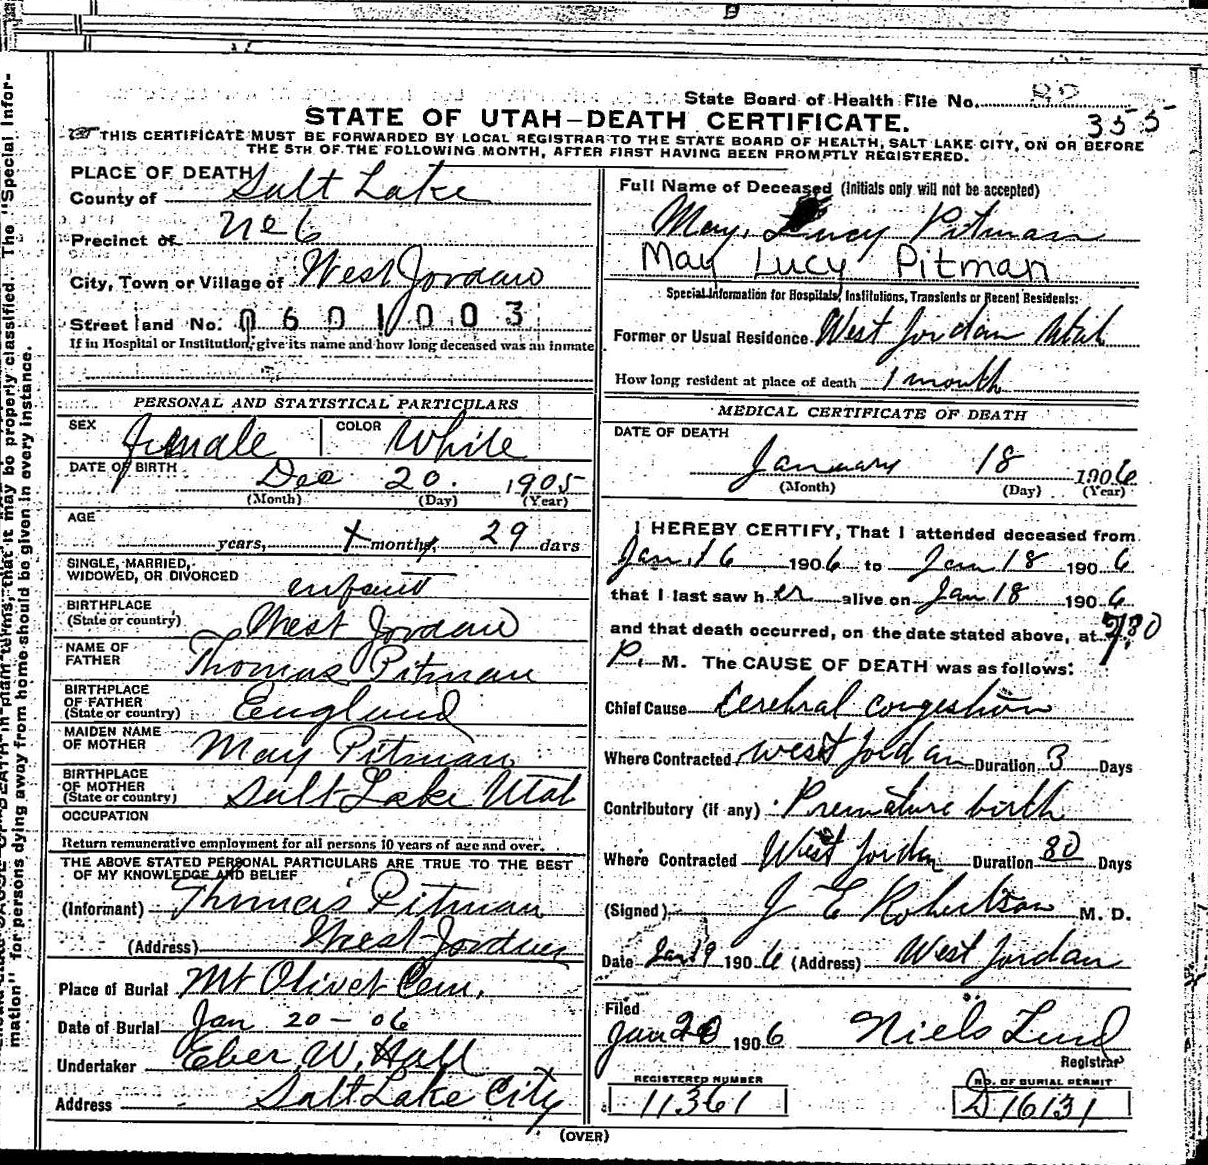 State Board of Health File No.
355
STATE OF UTAH—DEATH CERTIFICATE.
THIS CERTIFICATE MUST BE FORWARDED BY LOCAL REGISTRAR TO THE STATE BOARD OF HEALTH, SALT LAKE CITY, ON OR BEFORE
THE 5TH OF THE FOLLOWING MONTH, AFTER FIRST HAVING BEEN PROMPTLY REGISTERED.
PLACE OF DEATH
County of Salt Lake
Precinct of No 6
City, Town or Village of West Jordan
Street and No. 0601003
If in Hospital or Institution, give its name and how long deceased was an inmate
PERSONAL AND STATISTICAL PARTICULARS
SEX female COLOR White
DATE OF BIRTH Dec 20. 1905
(Month) (Day) (Year)
AGE
years, months, 29 days
SINGLE, MARRIED,
WIDOWED, OR DIVORCED infant
BIRTHPLACE
(State or country) West Jordan
NAME OF
FATHER Thomas Pitman
BIRTHPLACE
OF FATHER
(State or country) England
MAIDEN NAME
OF MOTHER May Pitman
BIRTHPLACE
OF MOTHER
(State or country) Salt Lake Utah
OCCUPATION
Return remunerative employment for all persons 10 years of age and over.
THE ABOVE STATED PERSONAL PARTICULARS ARE TRUE TO THE BEST
OF MY KNOWLEDGE AND BELIEF
(Informant) Thomas Pitman
(Address) West Jordan
Place of Burial Mt Olivet Cem.
Date of Burial Jan 20-06
Undertaker Eber W. Hall
Address Salt Lake City
Full Name of Deceased (Initials only will not be accepted)
May, Lucy Pitman
May Lucy Pitman
Special Information for Hospitals, Institutions, Transients or Recent Residents:
Former or Usual Residence West Jordan Utah
How long resident at place of death 1 month
MEDICAL CERTIFICATE OF DEATH
DATE OF DEATH
January 18 1906
(Month) (Day) (Year)
I HEREBY CERTIFY, That I attended deceased from
Jan. 16 1906 to Jan 18 1906
that I last saw her alive on Jan 18 1906
and that death occurred, on the date stated above, at 7.30
P. M. The CAUSE OF DEATH was as follows:
Chief Cause Cerebral congestion
Where Contracted West Jordan Duration 3 Days
Contributory (if any) Premature birth
Where Contracted West Jordan Duration 30 Days
(Signed) J E Robertson M. D.
Date Jan 19 1906 (Address) West Jordan
Filed
Jan 20 1906 Niels Lind
Registrar
REGISTERED NUMBER
11361
NO. OF BURIAL PERMIT
D16131
(OVER)
mation" for persons dying away from home should be given in every instance.